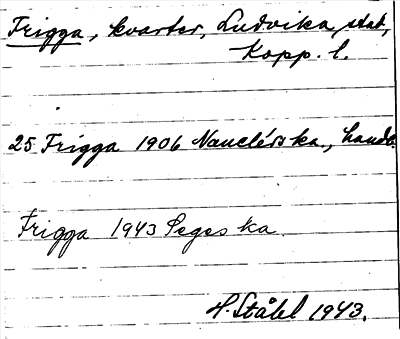 Frigga, kvarter, Ludvika stad,
Kopp. l.
25 Frigga 1906 Nauclérska, handl.
Frigga 1943 Pegeska
H. Ståhl 1943.